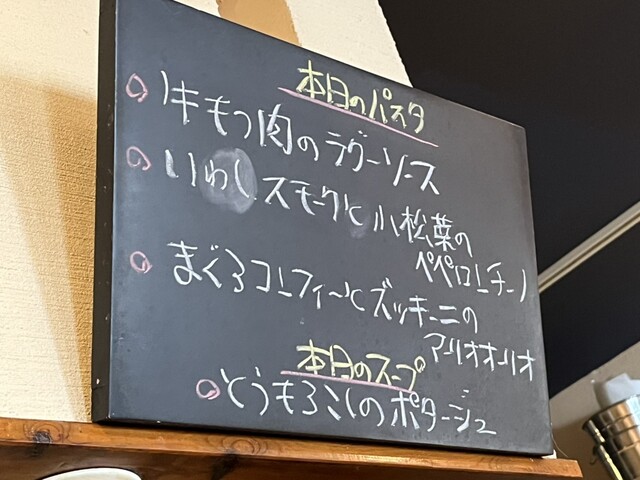 本日のパスタ
牛もつ肉のラグーソース
いわしスモークと小松菜の
ペペロンチーノ
まぐろコンフィーとズッキーニの
アーリオオーリオ
本日のスープ
とうもろこしのポタージュ